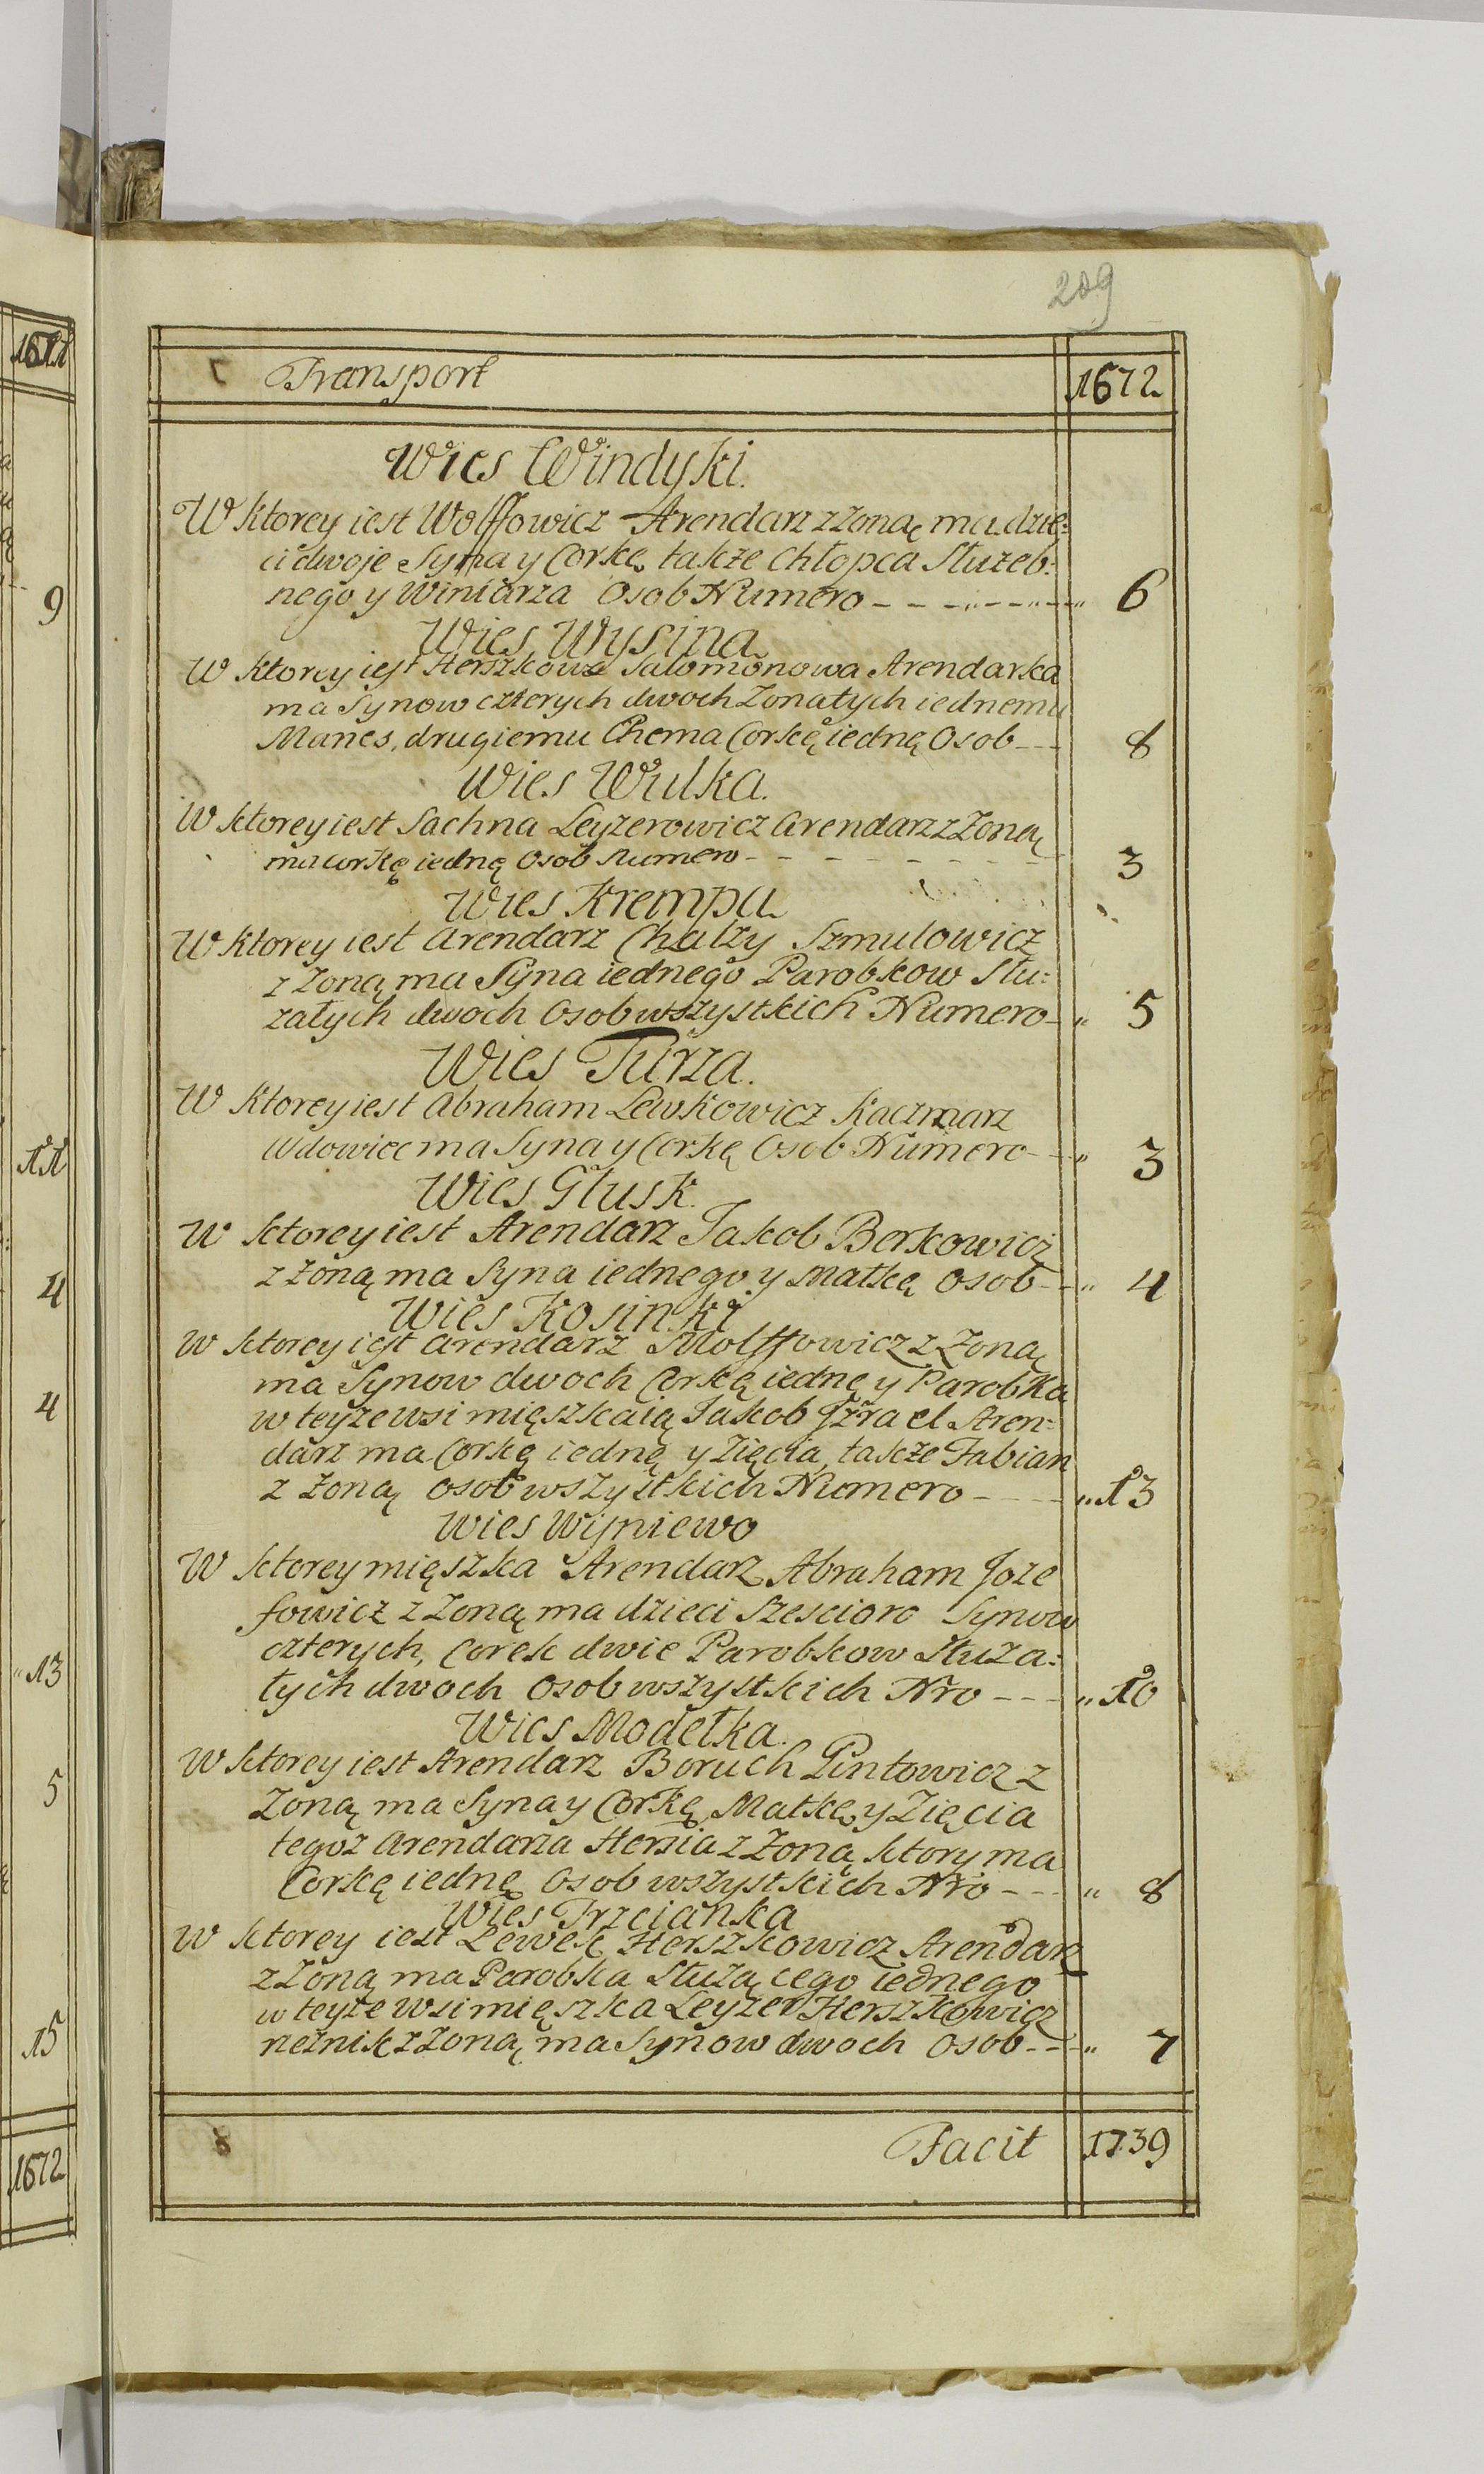 209
Transport 1672
Wies Windyki.
W ktorey iest Wolffowicz Arendarz z Zoną ma dzie:
ci dwoje Syna y Corkę także Chłopca Służeb:
nego y Winiarza Osob Numero - - - - - - 6
Wies Wysina
W ktorey iest Herszkowa Salomonowa Arendarka
ma Synow czterych dwoch Zonatych iednemu
Manes, drugiemu Chema Corkę iednę Osob - - - 8
Wies Wulka.
W ktorey iest Sachna Leyzerowicz Arendarz z Zoną
ma corkę iednę Osob Numero - - - - - - - - 3
Wies Krempa
W ktorey iest Arendarz Chalzy Szmulowicz
z Zoną ma Syna iednego Parobkow Słu:
załych dwoch Osob wszystkich Numero - 5
Wies Turza.
W ktorey iest Abraham Lewkowicz Kaczmarz
Wdowiec ma Syna y Corkę Osob Numero - - 3
Wies Głusk.
W ktorey iest Arendarz Jakob Berkowicz
z Zoną ma Syna iednego y Matkę Osob - - 4
Wies Kosinki
W ktorey iest Arendarz Molffowicz z Zoną
ma Synow dwoch Corkę iednę y Parobka
w teyże wsi mięszkaią Jakob Jzrael Aren:
darz ma Corkę iednę y Zięcia, także Fabian
z Zoną Osob wszystkich Numero - - - - 13
Wies Wyniewo
W ktorey mięszka Arendarz Abraham Joze
fowicz z Zoną ma dzieci sześcioro Synow
czterych, Corek dwie Parobkow służa:
łych dwoch Osob wszystkich Nro - - - 10
Wies Modełka.
W ktorey iest Arendarz Boruch Pintowicz z
Zoną ma Syna y Corkę, Matkę y Zięcia
tegoż Arendarza Hersia z Zoną ktory ma
Corkę iednę Osob wszystkich Nro - - - 8
Wies Trzcianka
W ktorey iest Lewek Herszkowicz Arendarz
z Zoną ma Parobka służącego iednego
w teyże wsi mięszka Leyzer Herszkowicz
rzeźnik z Zoną ma Synow dwoch Osob - - - 7
Facit 1739
9
11
4
4
13
5
15
1672